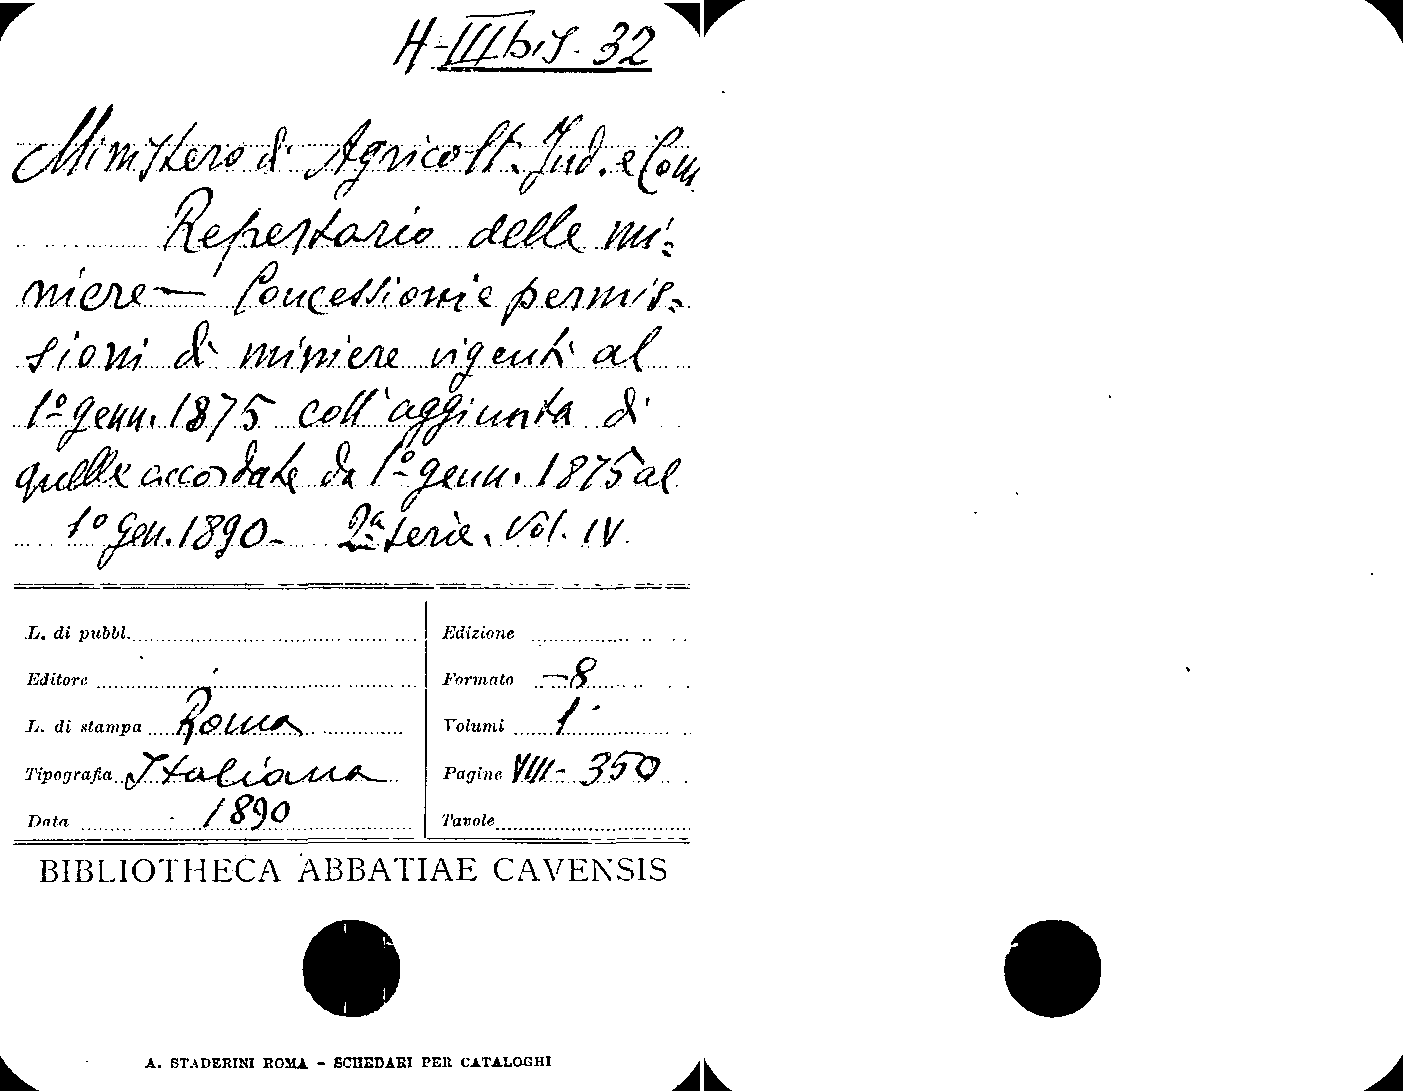 H-III bis. 32
Ministero di Agricolt. Ind. e Com
Repertorio delle mi=
niere — Concessioni e permis=
sioni di miniere vigenti al
1º genn. 1875 coll'aggiunta di
quelle accordate da 1º genn. 1875 al
1º Gen. 1890 - 2ª serie. Vol. IV.
L. di pubbl.
Edizione
Editore
Formato -8
L. di stampa Roma
Volumi 1
Tipografia Italiana
Pagine VIII - 350
Data 1890
Tavole
BIBLIOTHECA ABBATIAE CAVENSIS
A. STADERINI ROMA - SCHEDARI PER CATALOGHI